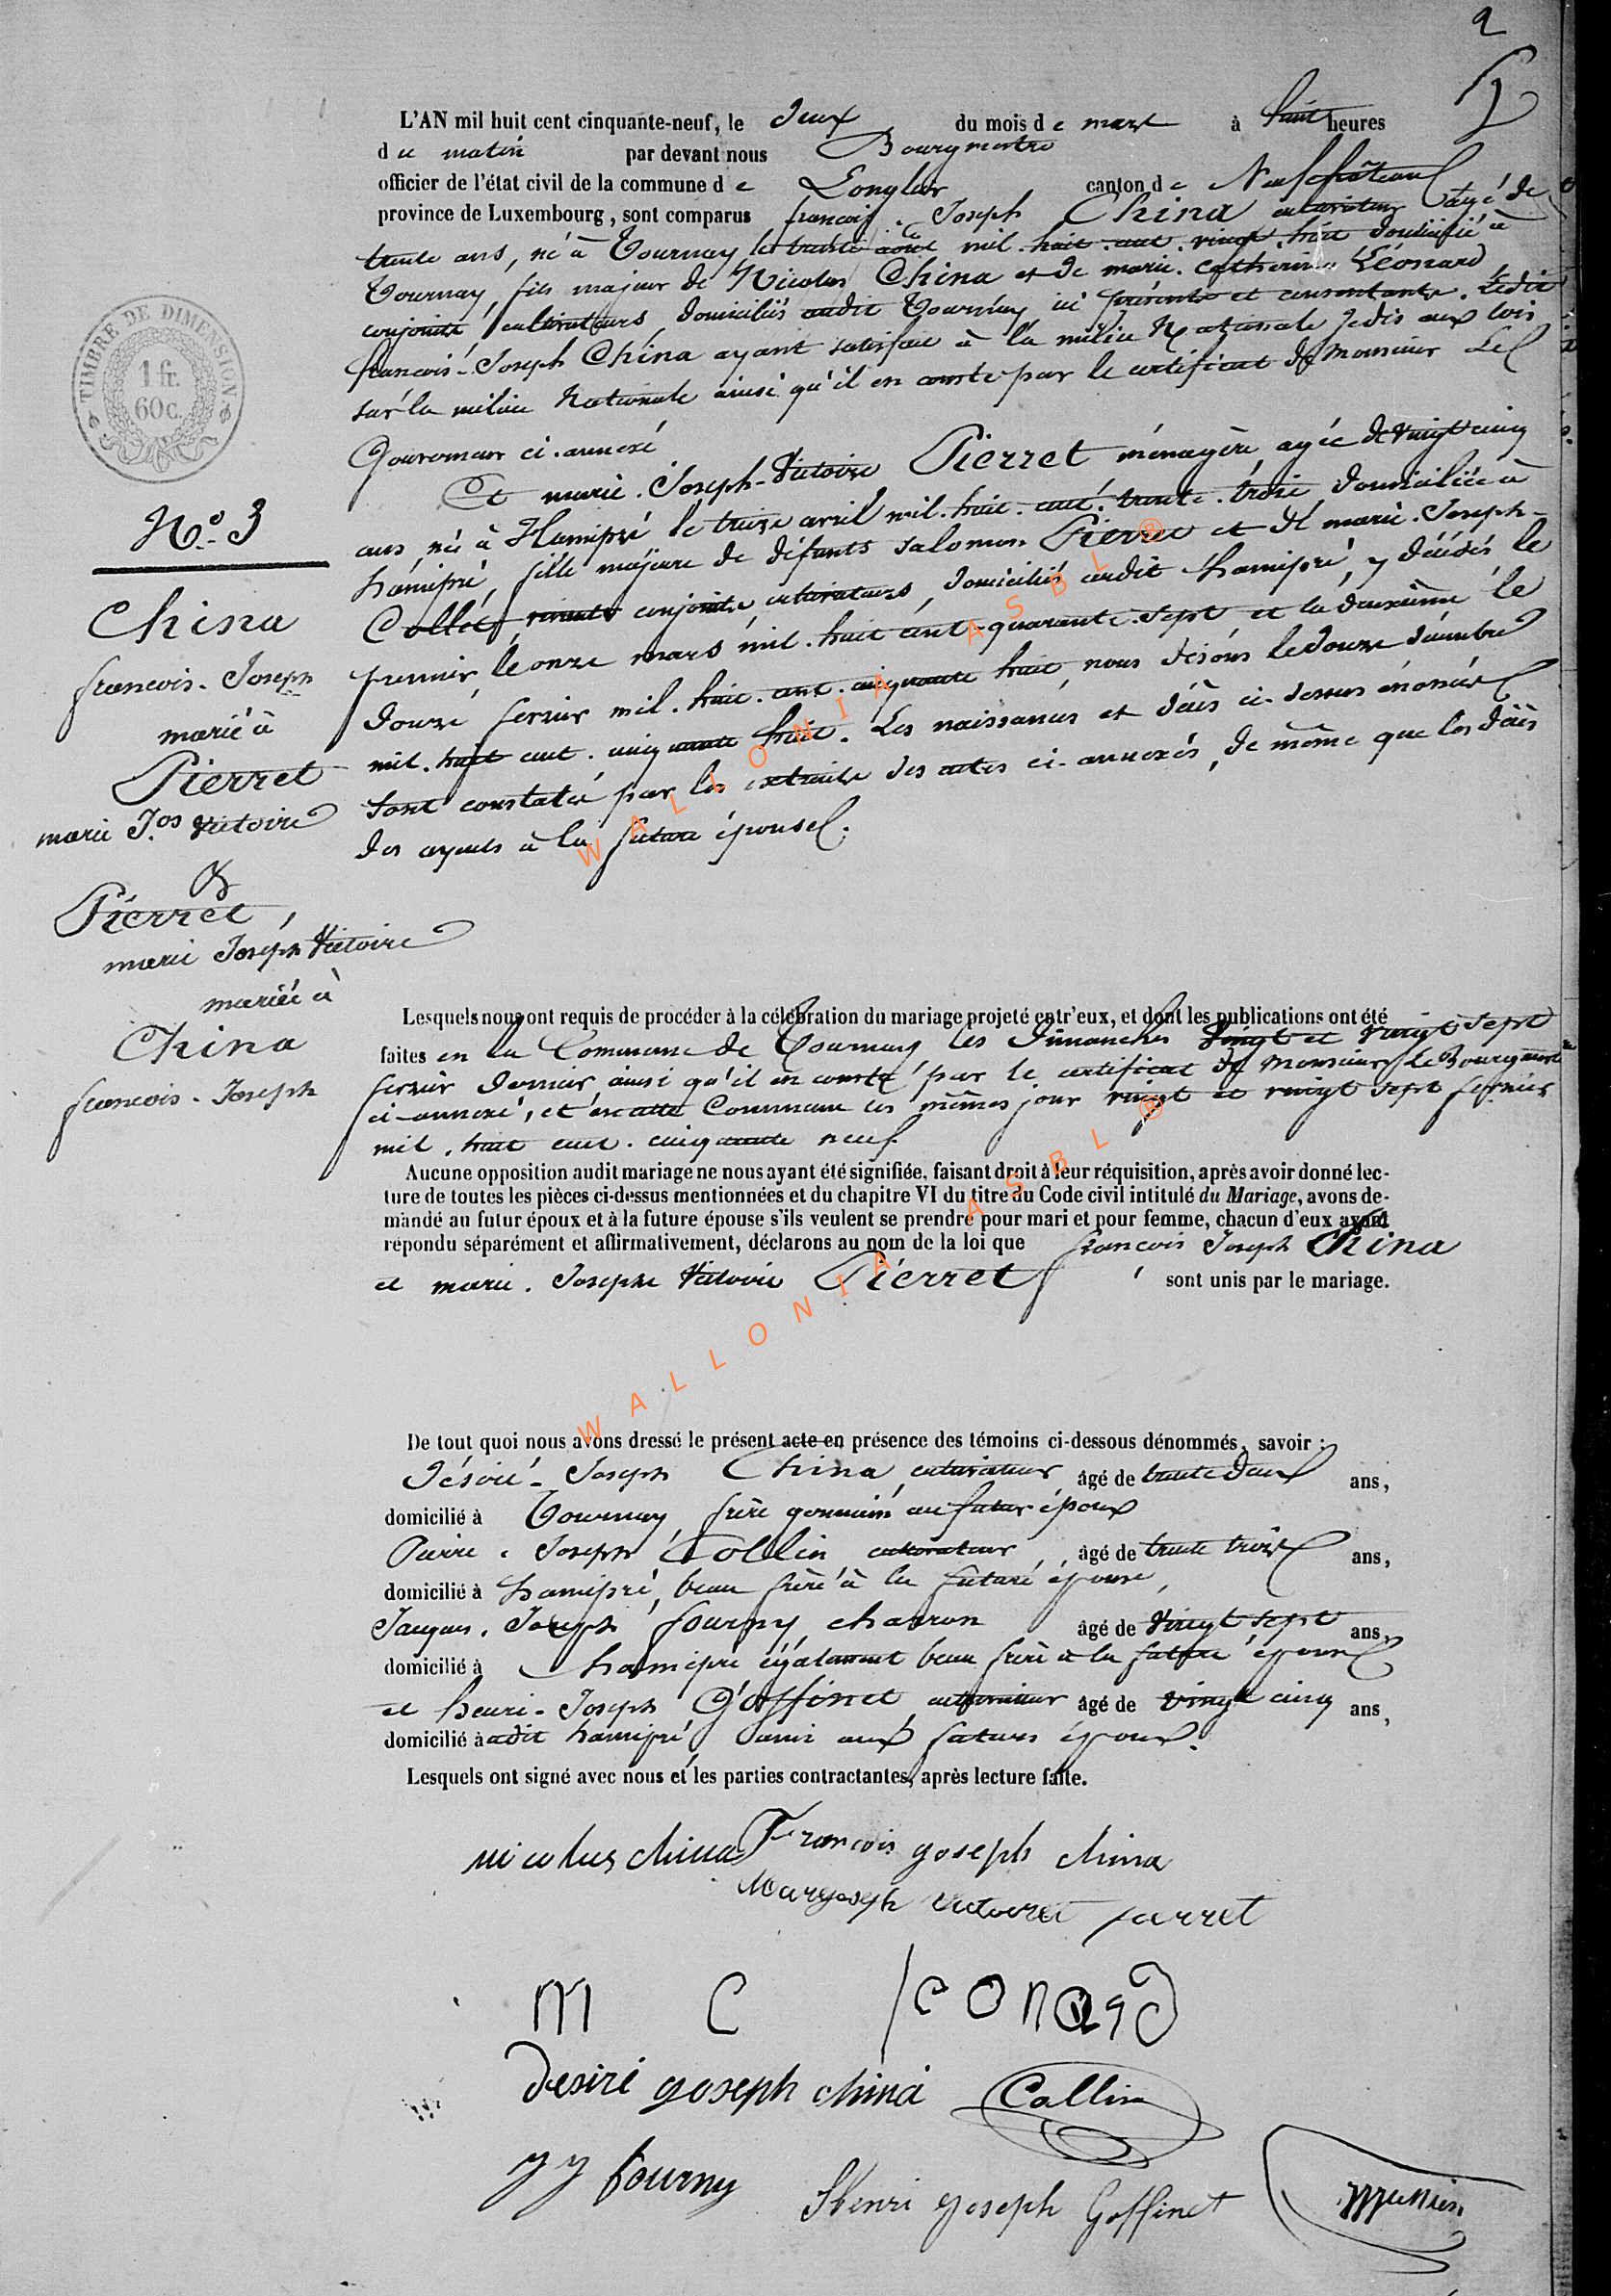 2
L'AN mil huit cent cinquante-neuf, le deux du mois de mars à huit heures
du matin par devant nous Bourgmestre
officier de l'état civil de la commune de Longlier canton de Neufchâteau
province de Luxembourg, sont comparus francois. Joseph China cultivateur agé de
trente ans, né à Tournay le trente août mil. huit. cent. vingt. huit domicilié à
Tournay, fils majeur de Nicolas China et de marie. catherine Léonard,
conjoints cultivateurs domiciliés audit Tournay ici présents et consentants. Ledit
francois. Joseph China ayant satisfait à la milice Nationale aux lois
sur la milice Nationale ainsi qu'il en conste par le certificat de Monsieur Le
Gouverneur ci. annexé
Et marie. Joseph-Victoire Pierret ménagère, agée de vingt cinq
ans, née à Hamipré le treize avril mil. huit. cent. trente. trois, domiciliée à
hamipré, fille majeure de défunts salomon Pierret et de marie. Joseph-
Collet, conjoints cultivateurs, domiciliés audit hamipré, y décédés le
premier, le onze mars mil. huit cent. quarante. sept et la deuxième le
douze fevrier mil. huit. cent. cinquante huit, nous disons le douze décembre
mil. huit cent. cinquante huit. Les naissances et décès ci-dessus énoncés
sont constatés par les extraits des actes ci-annexés, de même que les décès
des ayeuls à la future épouse.
TIMBRE DE DIMENSION
1 fr.
60 c.
No. 3
China
francois. Joseph
marié à
Pierret
marie Jos. Victoire
&
Pierret,
marie Joseph Victoire
mariée à
China
francois. Joseph
Lesquels nous ont requis de procéder à la célébration du mariage projeté entr'eux, et dont les publications ont été
faites en la Commune de Tournay les dimanches vingt et vingt sept
fevrier dernier ainsi qu'il en conste par le certificat de Monsieur Le Bourgmestre
ci-annexé, et en cette Commune les mêmes jour vingt et vingt sept fevrier
mil. huit cent. cinquante neuf.
Aucune opposition audit mariage ne nous ayant été signifiée, faisant droit à leur réquisition, après avoir donné lec-
ture de toutes les pièces ci-dessus mentionnées et du chapitre VI du titre du Code civil intitulé du Mariage, avons de-
mandé au futur époux et à la future épouse s'ils veulent se prendre pour mari et pour femme, chacun d'eux ayant
répondu séparément et affirmativement, déclarons au nom de la loi que francois Joseph China
et marie. Josephe Victoire Pierret sont unis par le mariage.
De tout quoi nous avons dressé le présent acte en présence des témoins ci-dessous dénommés, savoir :
Désiré. Joseph China, cultivateur âgé de trente deux ans,
domicilié à Tournay, frère germain au futur époux
Pierre. Joseph Collin cultivateur, âgé de trente trois ans,
domicilié à hamipré, beau frère à la future épouse,
Jacques. Joseph fourny charron âgé de vingt sept ans,
domicilié à hamipré également beau frère à la future épouse
et henri. Joseph Goffinet, cultivateur âgé de vingt cinq ans,
domicilié à dit hamipré ami aux futurs époux.
Lesquels ont signé avec nous et les parties contractantes, après lecture faite.
nicolas china Francois goseph china
Margoseph victoire pierret
M C leonard
desiré goseph china Collin
JJ fourny Henri joseph Goffinet
WALLONIA ASBL ®
WALLONIA ASBL ®